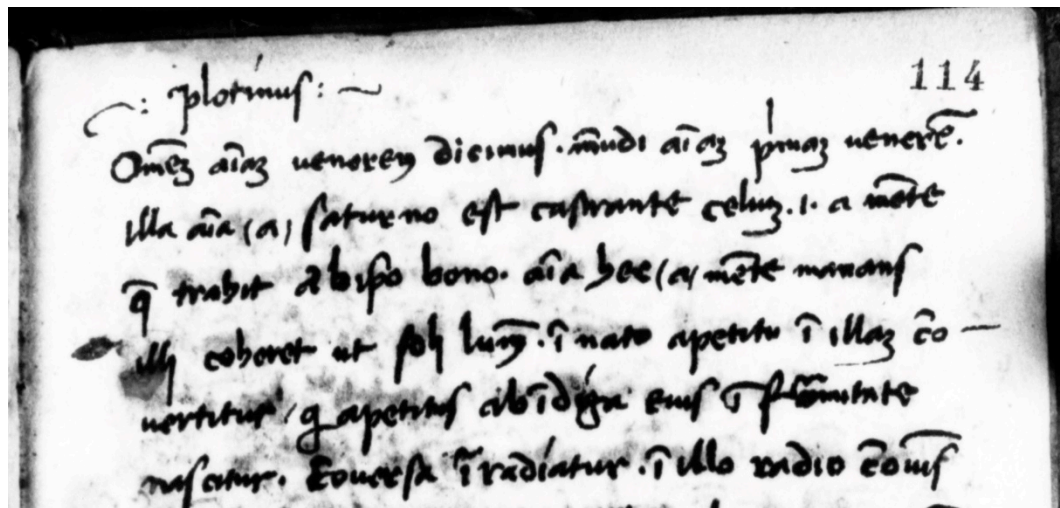 : plotinus : ~
114
Om̄eʒ aīaʒ venereʒ dicimus. m̄udi aīaʒ pimaʒ venerē.
illa aīa (a) saturno est castrante celuʒ .i. a mēte
q̄ trahit ab ipso bono. aīa hec (a) mēte manans
illi coheret ut soli lum̄. ī nato apetitu ī illaʒ cō
vertitur, q apetitus ab īdiga eius ī
nascitur. Cōversa ī radiatur. ī illo radio